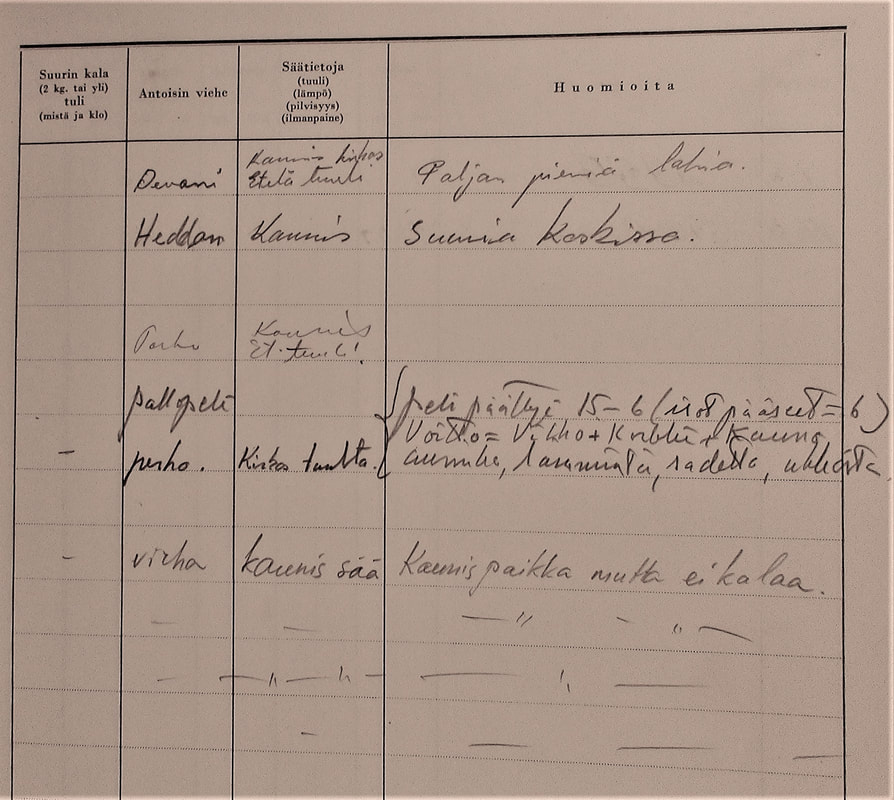 Suurin kala
(2 kg. tai yli)
tuli
(mistä ja klo)
Antoisin viehe
Säätietoja
(tuuli)
(lämpö)
(pilvisyys)
(ilmanpaine)
Huomioita
Kaunis kirkas
Devani Etelä tuuli Paljan pieniä lahia.
Heddon Kaunis Suuria koskissa.
Perho Kaunis
Et. tuuli!
pallopeli peli päättyi 15-6 (isot pääseet = 6)
Voitto = + + Kauno
- perho. Kirkas tuulta. aurinko, sadetta, ukkosta
- virha kaunis sää Kaunis paikka mutta ei kalaa.
— — —〃 - 〃—
— —〃—〃— — 〃 —
- — — —